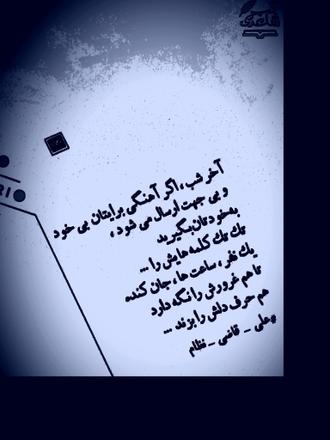 آخر شب ، اگر آهنگی برایتان بی خود
و بی جهت ارسال می شود ،
به خودتان بگیرید
تک تک کلمه هایش را ...
یک نفر ، ساعت ها ، جان کنده
تا هم غرورش را نگه دارد
هم حرف دلش را بزند ...
علی _ قاضی _ نظام